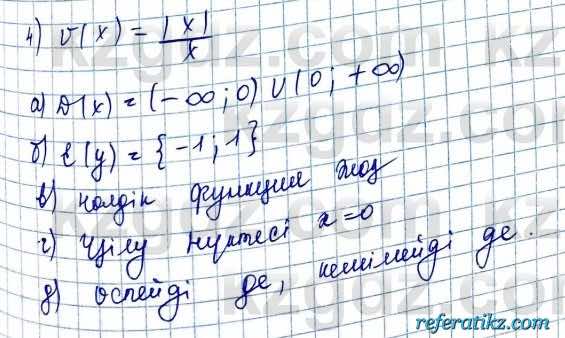 4) v(x) = |x|/x
а) D(x) = (-∞; 0) ∪ (0; +∞)
б) E(y) = {-1; 1}
в) нөлдік функция жоқ
г) үзілу нүктесі x=0
д) өспейді де, кемімейді де.
kzgdz.com
referatikz.com